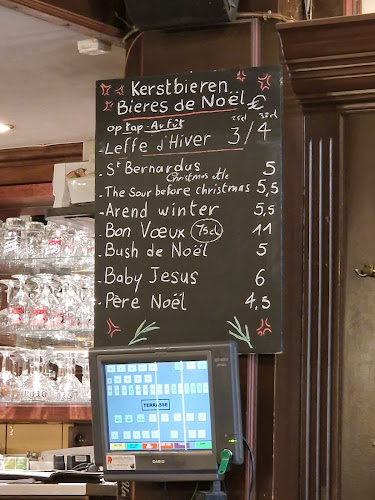 Kerstbieren
Bieres de Noël €
op tap - Au fût 25cl 33cl
- Leffe d'Hiver 3 / 4
- St Bernardus 5
Christmas Ale
- The Sour before christmas 5,5
- Arend winter 5,5
- Bon Vœux 75cl 11
- Bush de Noël 5
- Baby Jesus 6
- Père Noël 4,5
TERRASSE
CASIO